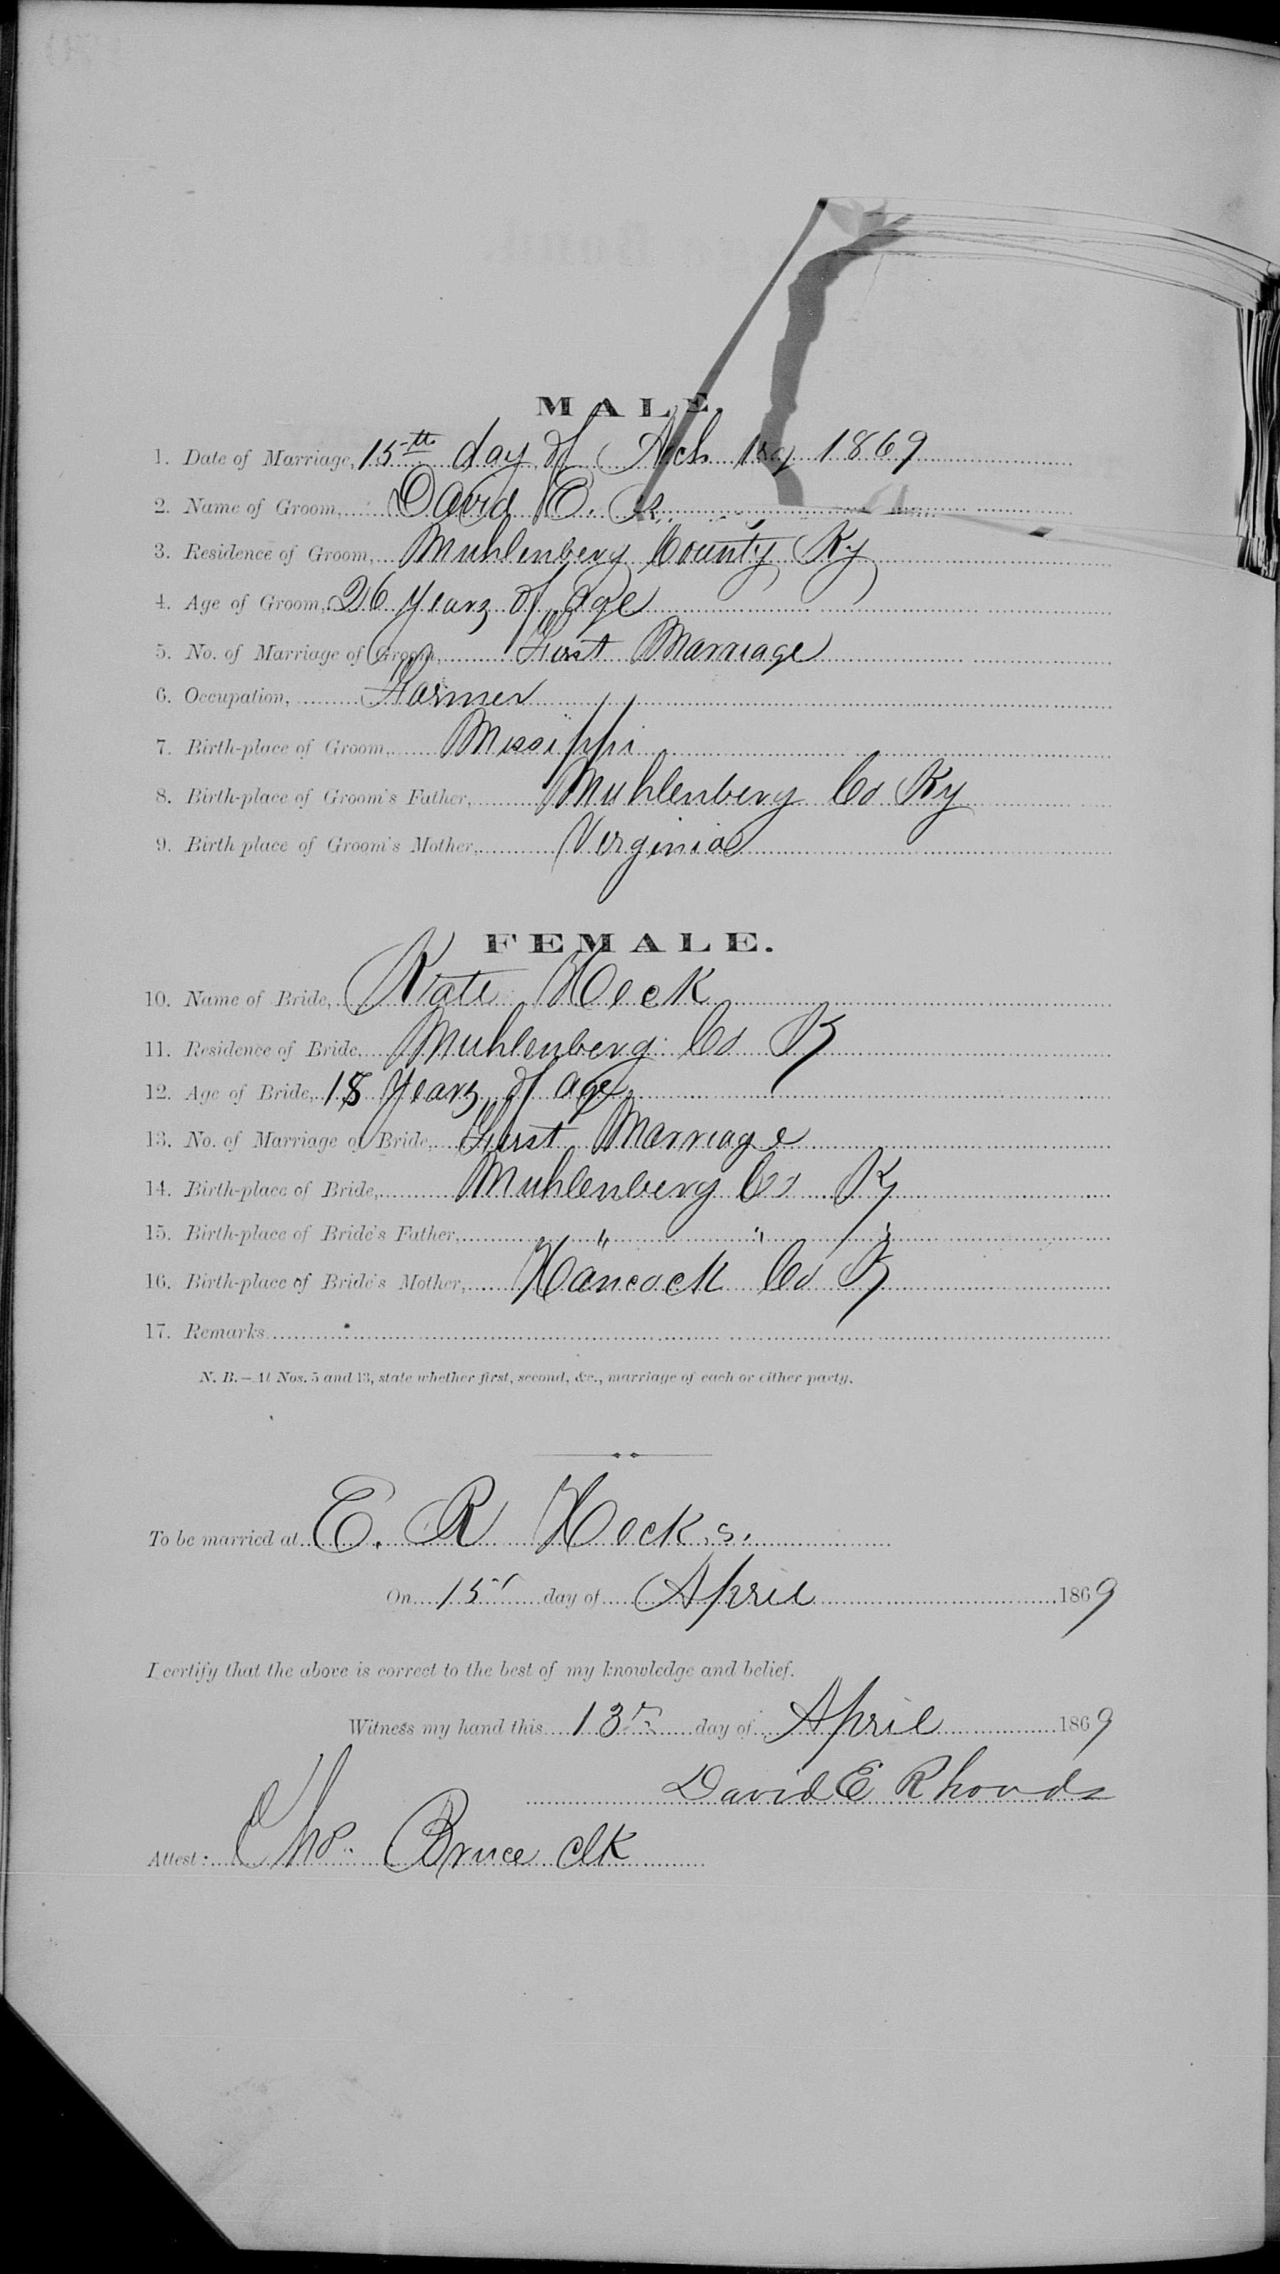 MALE.
1. Date of Marriage, 15th day of 1869
2. Name of Groom, David E. R
3. Residence of Groom, Muhlenberg County Ky
4. Age of Groom, 26 years of age
5. No. of Marriage of Groom, First Marriage
6. Occupation, Farmer
7. Birth-place of Groom, Missippi
8. Birth-place of Groom's Father, Muhlenberg Co Ky
9. Birth place of Groom's Mother, Virginia
FEMALE.
10. Name of Bride, Kate Heck
11. Residence of Bride, Muhlenberg Co Ky
12. Age of Bride, 18 years of age
13. No. of Marriage of Bride, First Marriage
14. Birth-place of Bride, Muhlenberg Co Ky
15. Birth-place of Bride's Father, " " "
16. Birth-place of Bride's Mother, Hancock Co Ky
17. Remarks
N. B.—At Nos. 5 and 13, state whether first, second, &c., marriage of each or either party.
To be married at E. R Hecks.
On 15 day of April 1869
I certify that the above is correct to the best of my knowledge and belief.
Witness my hand this 13 day of April 1869
David E Rhoads
Attest: Tho. Bruce clk